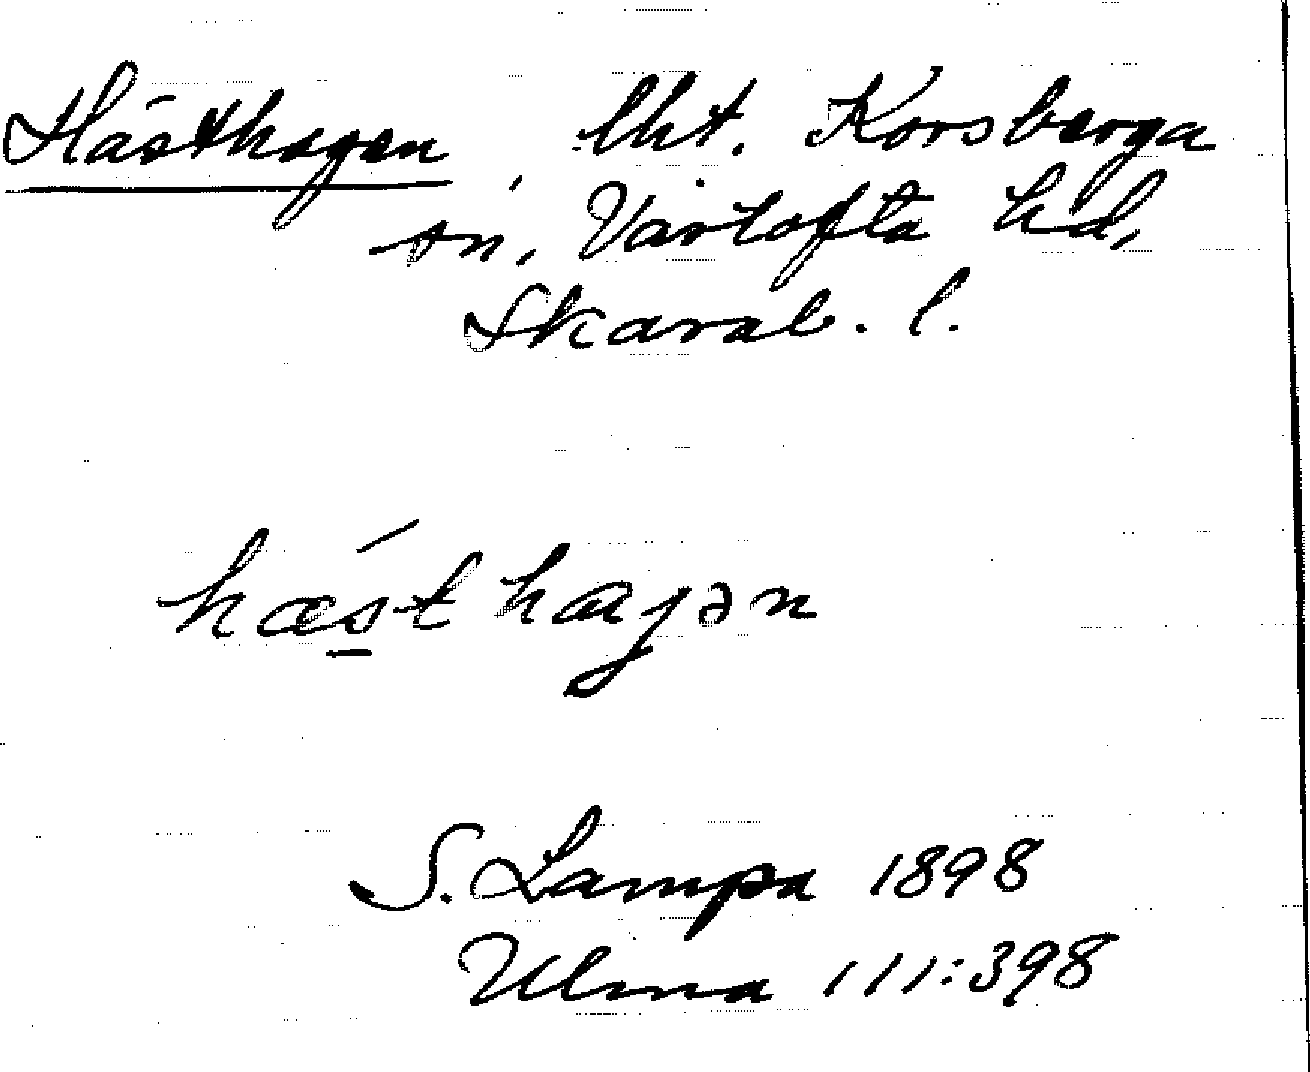 Hästhagen lht. Korsberga
sn, Vartofta hd,
Skarab. l.
hæsthagən
S. Lampa 1898
Ulma 111:398